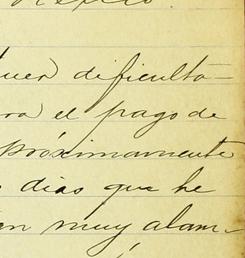 México.
cuen dificulta-
ra el pago de
próximamente
s dias que he
en muy alam-